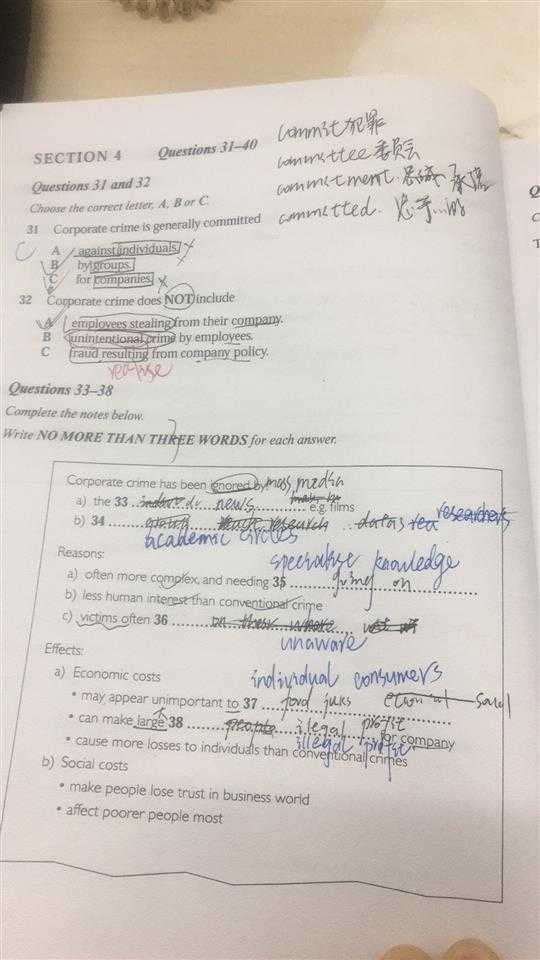 commit 犯罪
SECTION 4 Questions 31–40
committee 委员会
Questions 31 and 32
commitment
Choose the correct letter, A, B or C.
committed.
31 Corporate crime is generally committed
C
A against individuals.
B by groups.
C for companies.
32 Corporate crime does NOT include
A employees stealing from their company.
B unintentional crime by employees.
C fraud resulting from company policy.
Questions 33–38
Complete the notes below.
Write NO MORE THAN THREE WORDS for each answer.
Corporate crime has been ignored by mass media
a) the 33 news e.g. films
b) 34 research datas researchers
academic circles
Reasons: specialise knowledge
a) often more complex, and needing 35 giving on
b) less human interest than conventional crime
c) victims often 36
unaware
Effects:
a) Economic costs individual consumers
• may appear unimportant to 37
• can make large 38 people illegal profit for company
illegal profit
• cause more losses to individuals than conventional crimes
b) Social costs
• make people lose trust in business world
• affect poorer people most